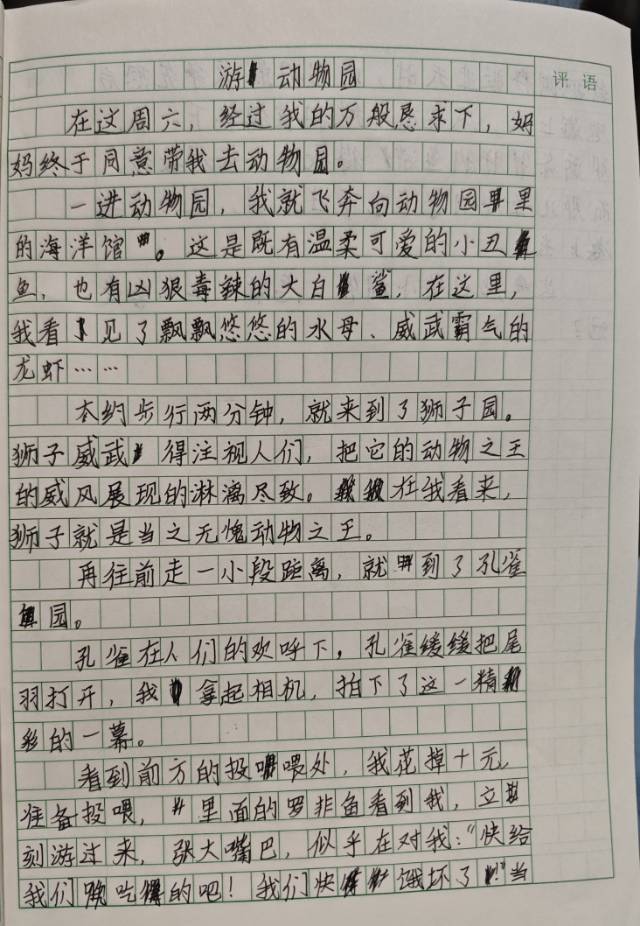 评语
游动物园
在这周六，经过我的万般恳求下，妈
妈终于同意带我去动物园。
一进动物园，我就飞奔向动物园里
的海洋馆。这是既有温柔可爱的小丑
鱼，也有凶狠毒辣的大白鲨，在这里，
我看见了飘飘悠悠的水母、威武霸气的
龙虾……
大约步行两分钟，就来到了狮子园。
狮子威武得注视人们，把它的动物之王
的威风展现的淋漓尽致。在我看来，
狮子就是当之无愧动物之王。
再往前走一小段距离，就到了孔雀
园。
孔雀在人们的欢呼下，孔雀缓缓把尾
羽打开，我拿起相机，拍下了这一精
彩的一幕。
看到前方的投喂处，我花掉十元，
准备投喂，里面的罗非鱼看到我，立
刻游过来，张大嘴巴，似乎在对我：“快给
我们吃的吧！我们快饿坏了！”当